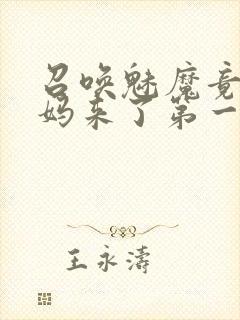 召唤魅魔竟
妈来了第一
王永涛